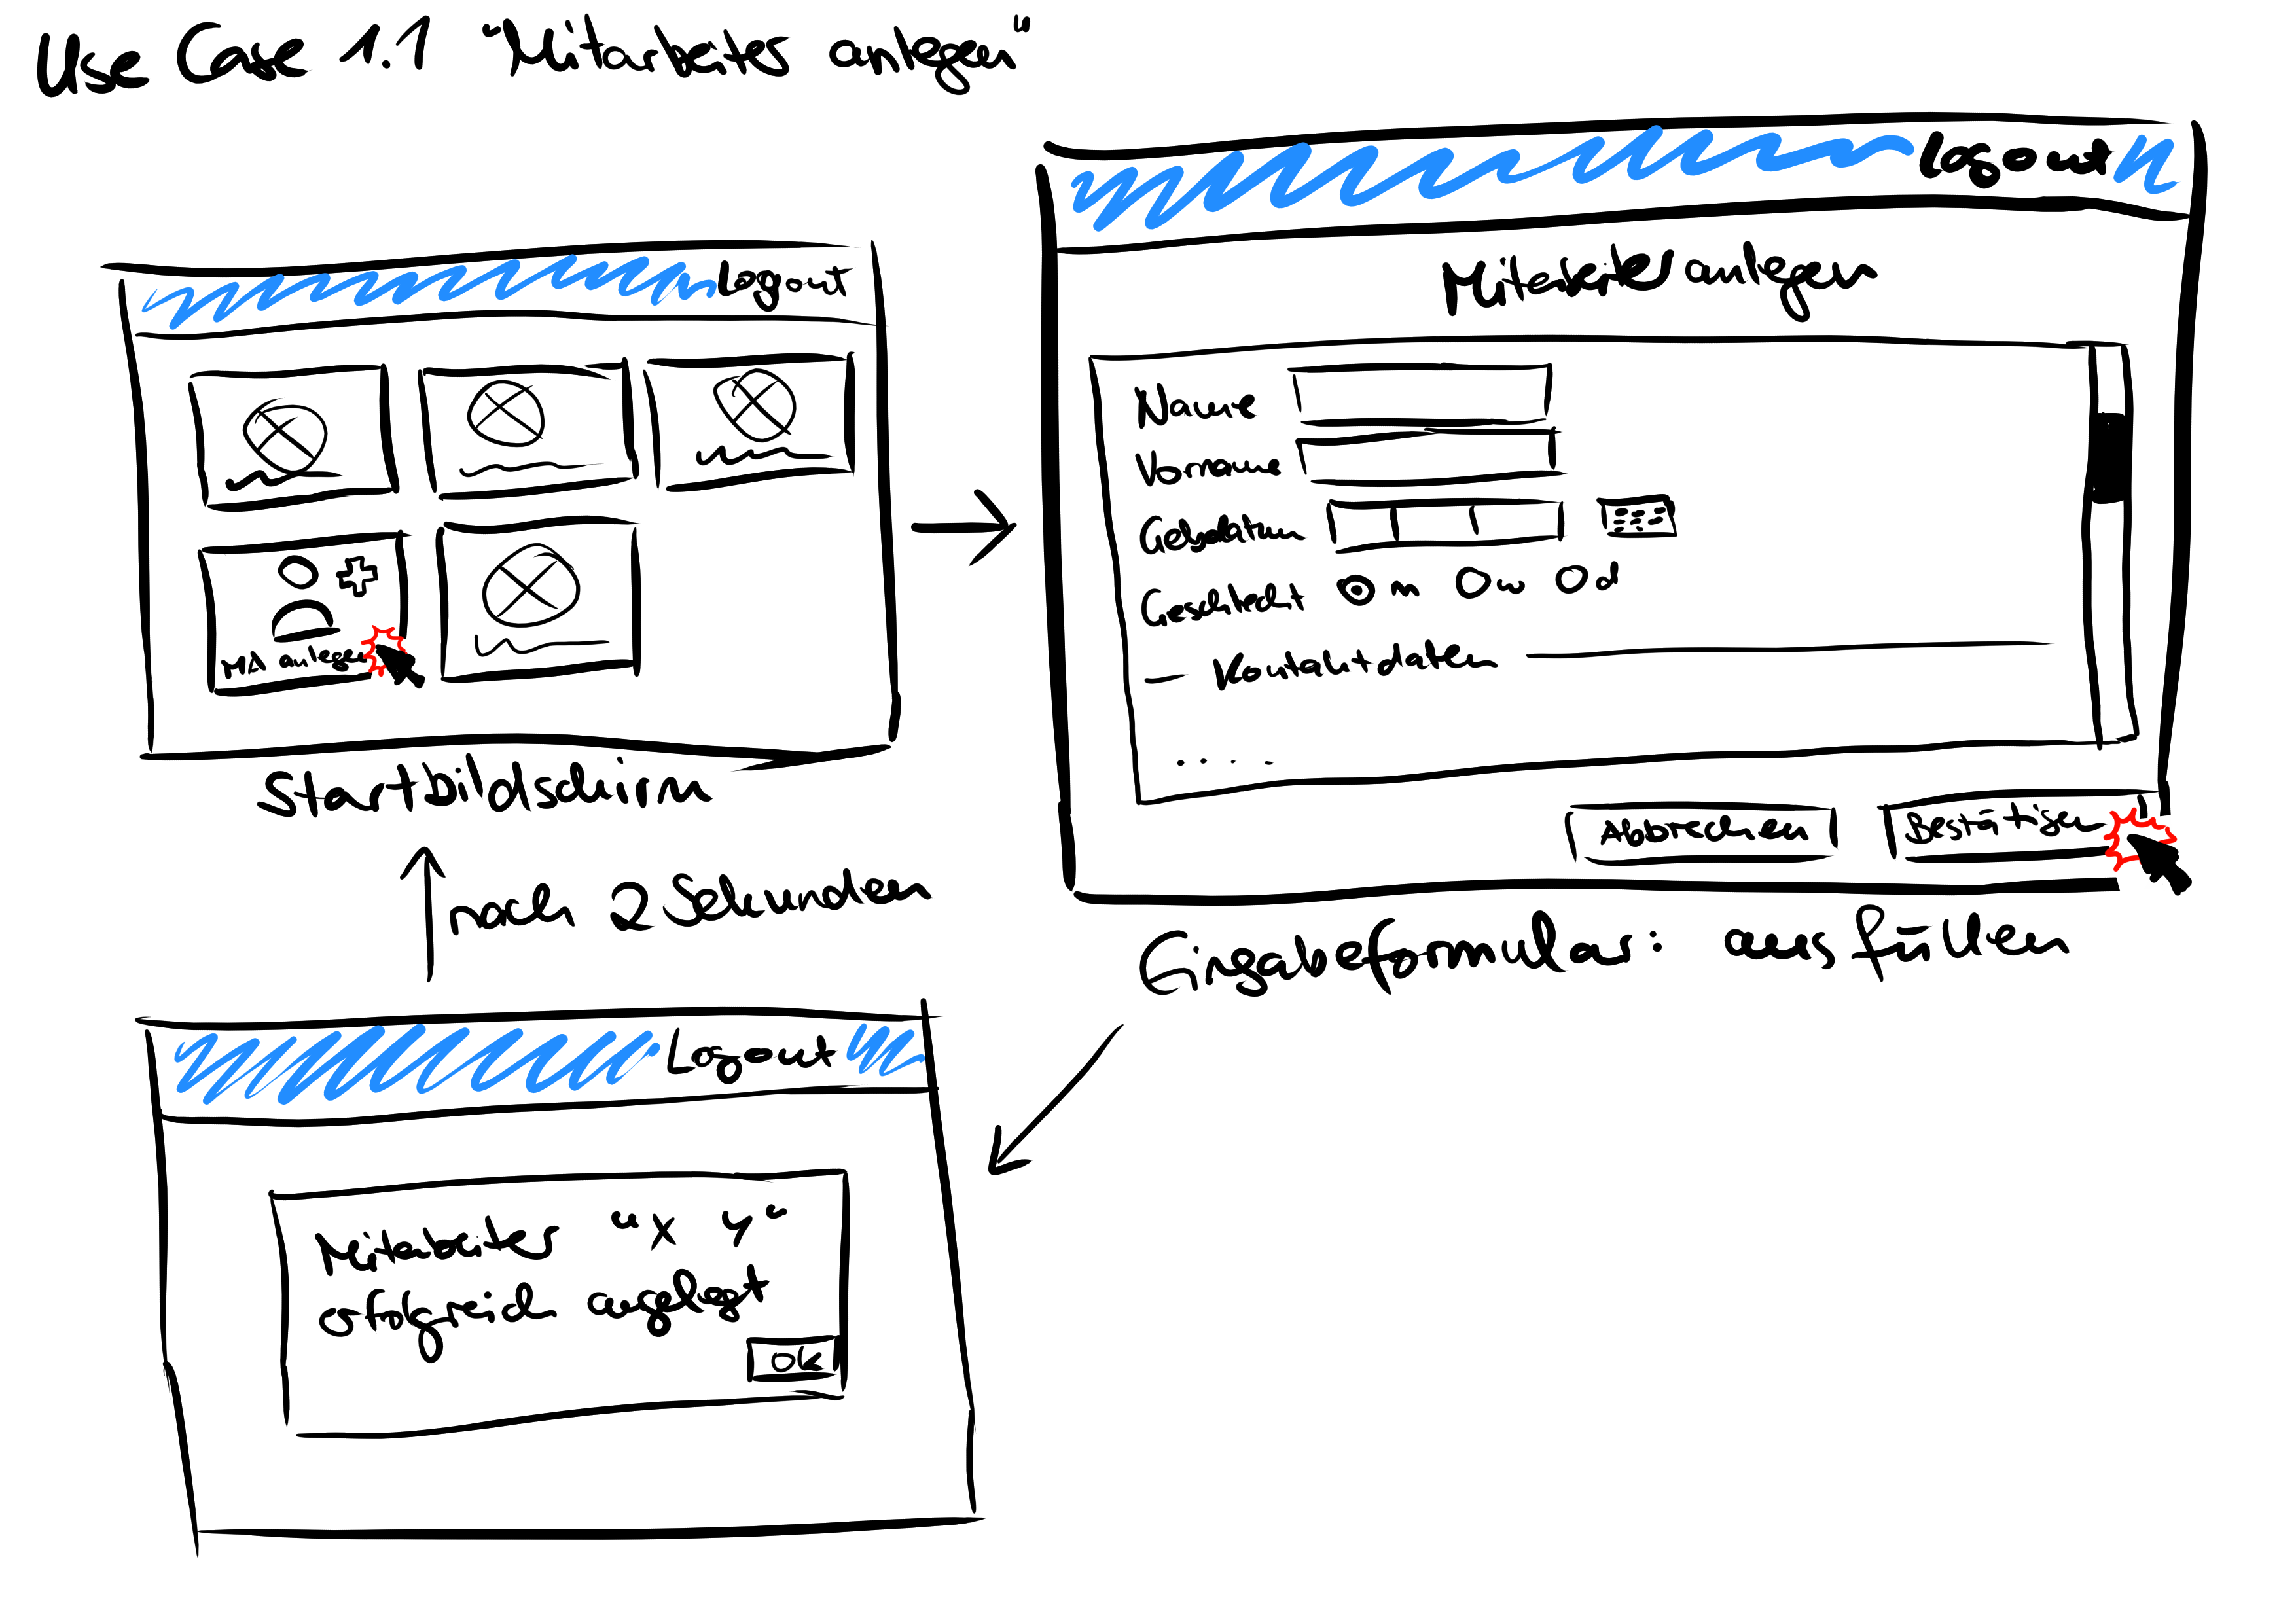 Use Case 1.1 "Mitarbeiter anlegen"
Logout
MA anlegen
Startbildschirm
Logout
Mitarbeiter anlegen
Name
Vorname
Gebdatum
Geschlecht m w d
Kontaktdaten
....
Abbrechen Bestätigen
Eingabeformular: ausfüllen
nach 2 Sekunden
Logout
Mitarbeiter "X Y"
erfolgreich angelegt
OK